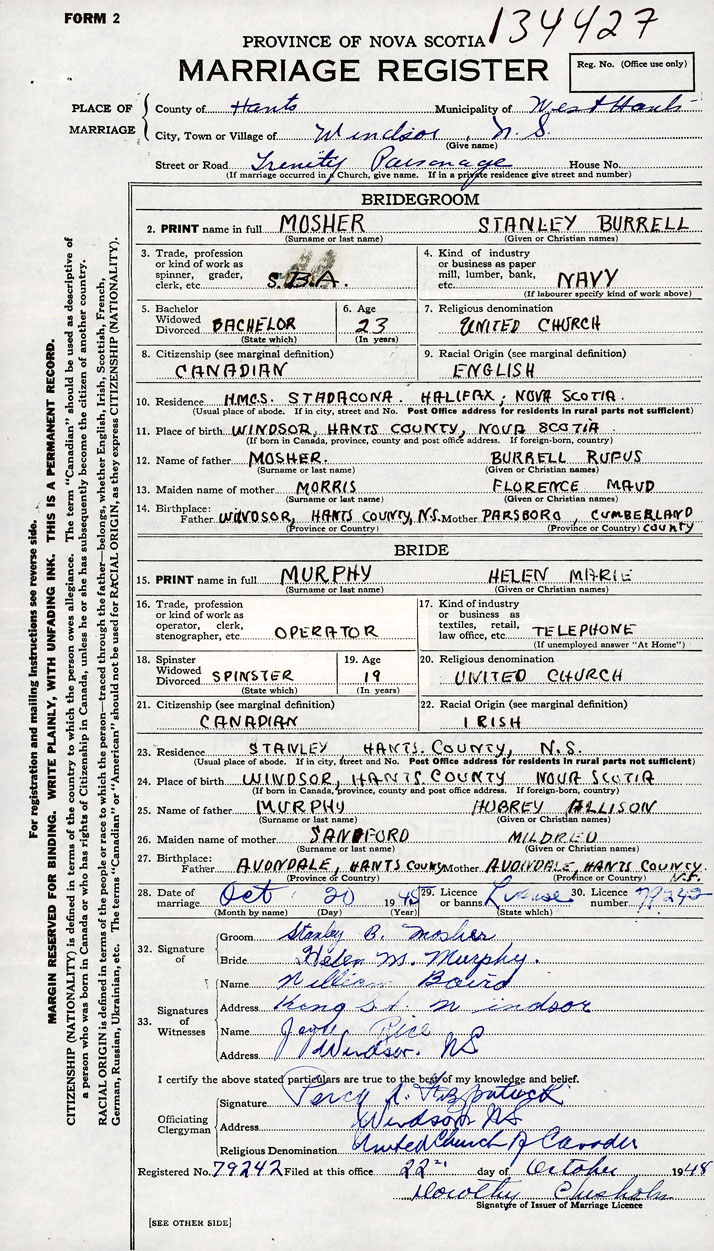 FORM 2
134427
PROVINCE OF NOVA SCOTIA
MARRIAGE REGISTER
Reg. No. (Office use only)
PLACE OF MARRIAGE
County of Hants Municipality of West Hants
City, Town or Village of Windsor, N.S.
(Give name)
Street or Road Trinity Parsonage House No.
(If marriage occurred in a Church, give name. If in a private residence give street and number)
BRIDEGROOM
2. PRINT name in full MOSHER STANLEY BURRELL
(Surname or last name) (Given or Christian names)
3. Trade, profession or kind of work as spinner, grader, clerk, etc. S.B.A.
4. Kind of industry or business as paper mill, lumber, bank, etc. NAVY
(If labourer specify kind of work above)
5. Bachelor Widowed Divorced BACHELOR
(State which)
6. Age 23
(In years)
7. Religious denomination
UNITED CHURCH
8. Citizenship (see marginal definition)
CANADIAN
9. Racial Origin (see marginal definition)
ENGLISH
10. Residence H.M.C.S. STADACONA. HALIFAX, NOVA SCOTIA.
(Usual place of abode. If in city, street and No. Post Office address for residents in rural parts not sufficient)
11. Place of birth WINDSOR, HANTS COUNTY, NOVA SCOTIA
(If born in Canada, province, county and post office address. If foreign-born, country)
12. Name of father MOSHER. BURRELL RUFUS
(Surname or last name) (Given or Christian names)
13. Maiden name of mother MORRIS FLORENCE MAUD
(Surname or last name) (Given or Christian names)
14. Birthplace:
Father WINDSOR, HANTS COUNTY, N.S. Mother PARSBORO, CUMBERLAND COUNTY
(Province or Country) (Province or Country)
BRIDE
15. PRINT name in full MURPHY HELEN MARIE
(Surname or last name) (Given or Christian names)
16. Trade, profession or kind of work as operator, clerk, stenographer, etc. OPERATOR
17. Kind of industry or business as textiles, retail, law office, etc. TELEPHONE
(If unemployed answer "At Home")
18. Spinster Widowed Divorced SPINSTER
(State which)
19. Age 19
(In years)
20. Religious denomination
UNITED CHURCH
21. Citizenship (see marginal definition)
CANADIAN
22. Racial Origin (see marginal definition)
IRISH
23. Residence STANLEY HANTS. COUNTY, N.S.
(Usual place of abode. If in city, street and No. Post Office address for residents in rural parts not sufficient)
24. Place of birth WINDSOR, HANTS COUNTY NOVA SCOTIA
(If born in Canada, province, county and post office address. If foreign-born, country)
25. Name of father MURPHY AUBREY ALLISON
(Surname or last name) (Given or Christian names)
26. Maiden name of mother SANDFORD MILDRED
(Surname or last name) (Given or Christian names)
27. Birthplace:
Father AVONDALE, HANTS COUNTY Mother AVONDALE, HANTS COUNTY. N.S.
(Province of Country) (Province or Country)
28. Date of marriage Oct 20 1948
(Month by name) (Day) (Year)
29. Licence or banns License
(State which)
30. Licence number 79242
32. Signature of
Groom Stanley B. Mosher
Bride Helen M. Murphy.
33. Signatures of Witnesses
Name William Baird
Address King St. Windsor
Name Rice
Address Windsor. NS
I certify the above stated particulars are true to the best of my knowledge and belief.
Officiating Clergyman
Signature Percy A. Fitzpatrick
Address Windsor NS
Religious Denomination United Church of Canada
Registered No. 79242 Filed at this office 22nd day of October 1948
Dorothy Chisholm
Signature of Issuer of Marriage Licence
[SEE OTHER SIDE]
For registration and mailing instructions see reverse side.
MARGIN RESERVED FOR BINDING. WRITE PLAINLY, WITH UNFADING INK. THIS IS A PERMANENT RECORD.
CITIZENSHIP (NATIONALITY) is defined in terms of the country to which the person owes allegiance. The term "Canadian" should be used as descriptive of
a person who was born in Canada or who has rights of Citizenship in Canada, unless he or she has subsequently become the citizen of another country.
RACIAL ORIGIN is defined in terms of the people or race to which the person—traced through the father—belongs, whether English, Irish, Scottish, French,
German, Russian, Ukrainian, etc. The terms "Canadian" or "American" should not be used for RACIAL ORIGIN, as they express CITIZENSHIP (NATIONALITY).